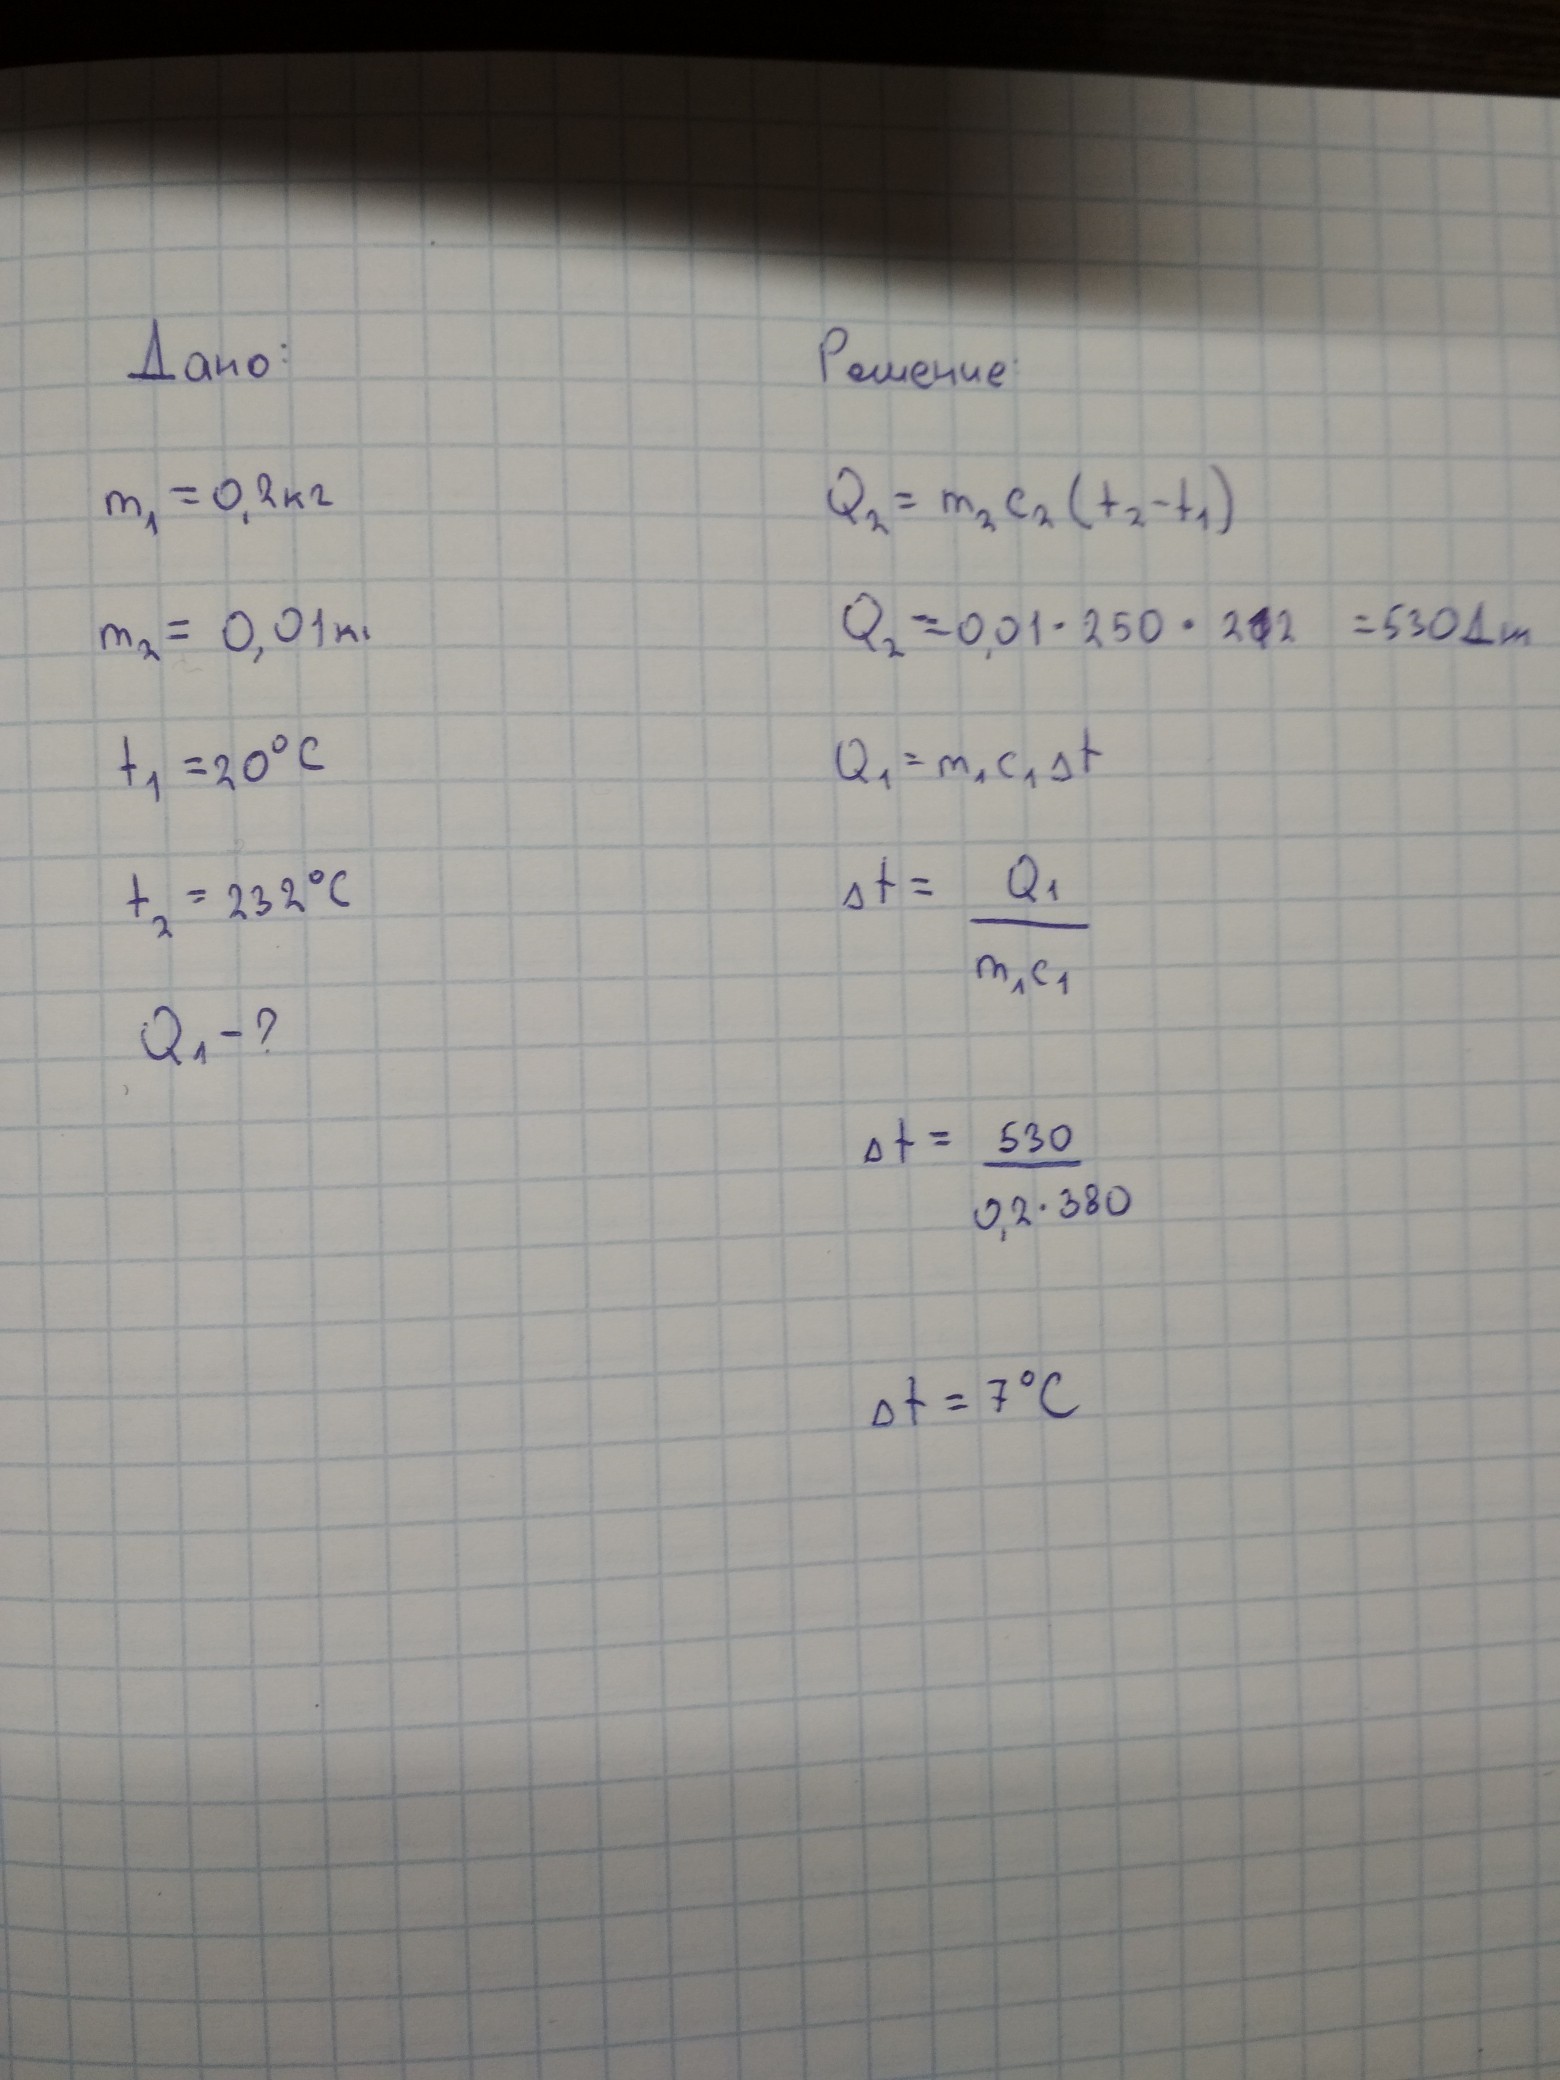 Дано:
m₁ = 0,2кг
m₂ = 0,01кг
t₁ = 20°C
t₂ = 232°C
Q₁ - ?
Решение:
Q₂ = m₂ c₂ (t₂ - t₁)
Q₂ = 0,01 · 250 · 212 = 530 Дж
Q₁ = m₁ c₁ Δt
Δt = Q₁ / m₁c₁
Δt = 530 / 0,2 · 380
Δt = 7°C